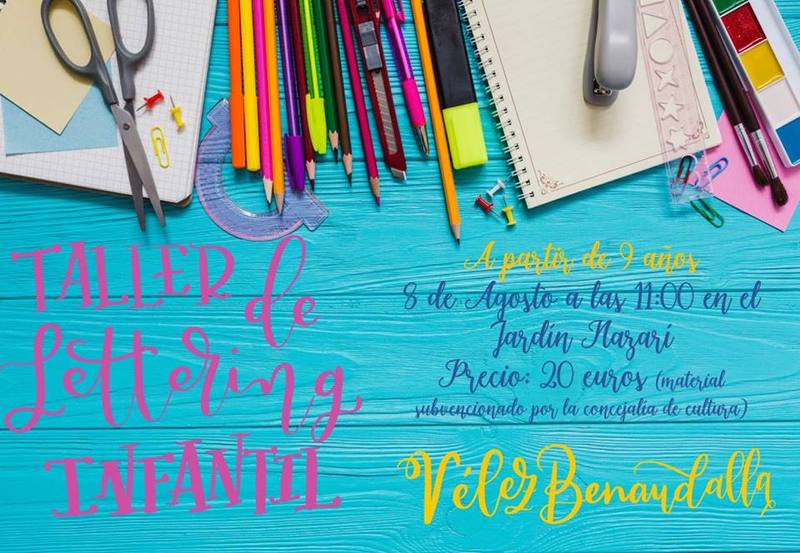 TALLER
de
Lettering
INFANTIL
A partir de 9 años
8 de Agosto a las 11:00 en el
Jardín Nazarí
Precio: 20 euros (material
subvencionado por la concejalía de cultura)
Vélez Benaudalla